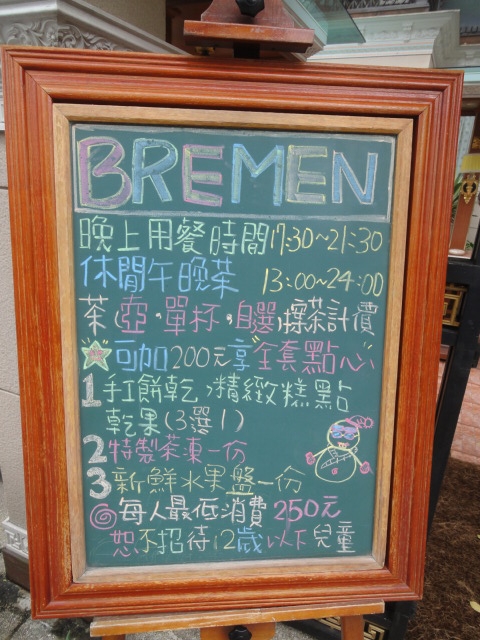 BREMEN
晚上用餐時間17:30~21:30
休閒午晚茶 13:00~24:00
茶(壺,單杯,自選)擇茶計價
可加200元享"全套點心"
1手工餅乾、精緻糕點
乾果(3選1)
2特製茶凍一份
3新鮮水果盤一份
每人最低消費250元
恕不招待12歲以下兒童